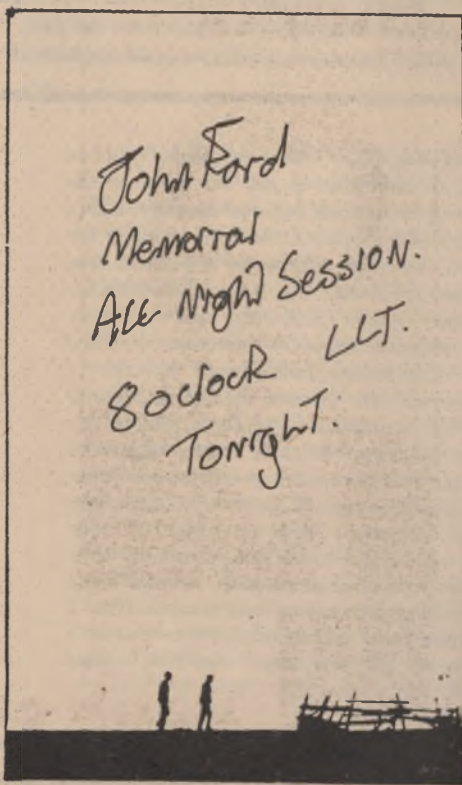 John Ford
Memorial
All Night Session.
8 oclock LLT.
Tonight.